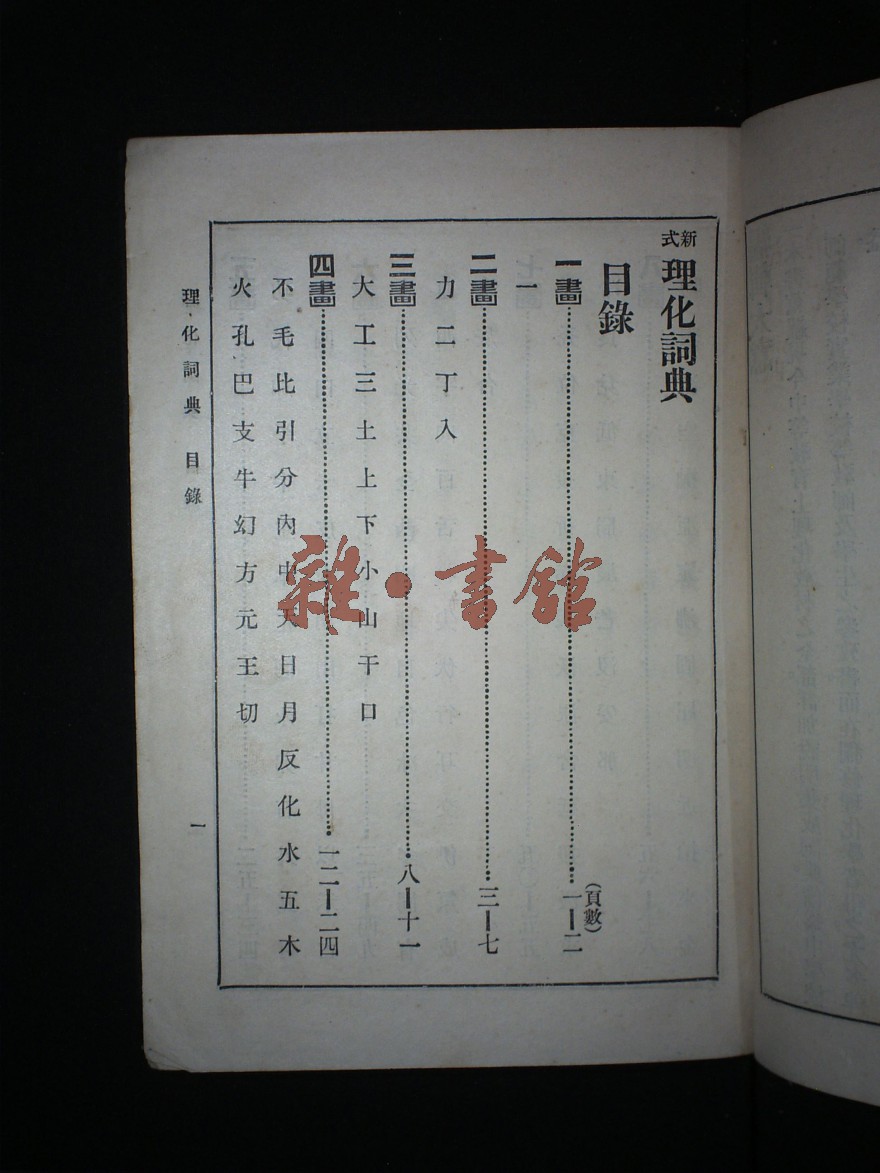 新式理化詞典
目錄
(頁數)
一畫……一—二
一
二畫……三—七
力二丁入
三畫……八—十一
大工三土上下小山干口
四畫……一二—二四
不毛比引分內中天日月反化水五木
火孔巴支牛幻方元王切
理化詞典 目錄 一
雜·書館